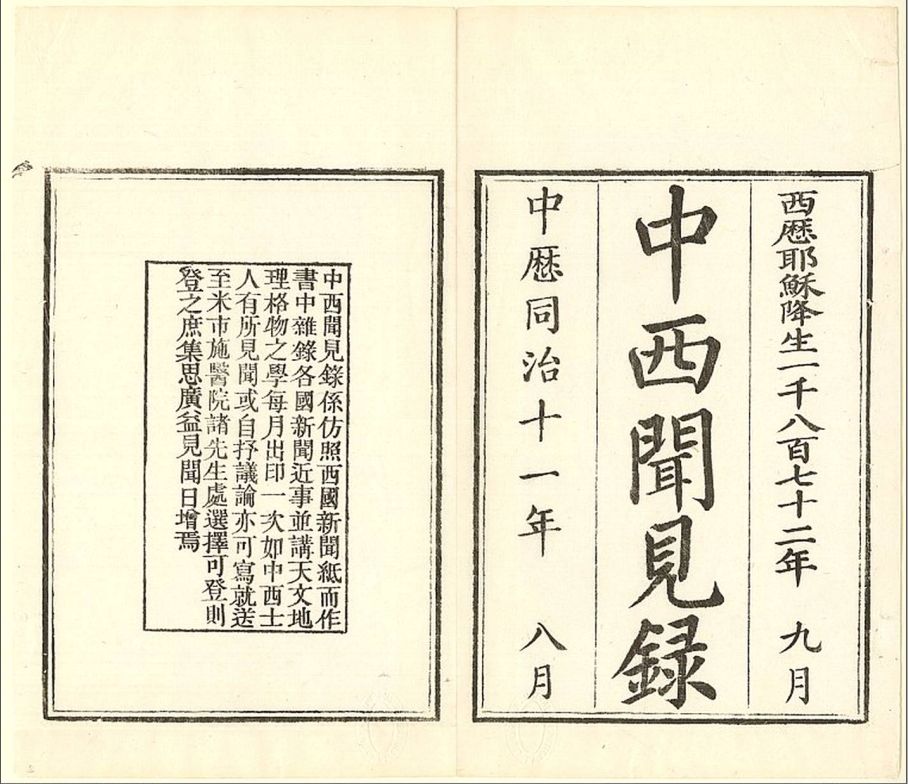 西歷耶穌降生一千八百七十二年 九月
中西聞見録
中歷同治十一年 八月
中西聞見錄係仿照西國新聞紙而作
書中雜錄各國新聞近事並講天文地
理格物之學每月出印一次如中西士
人有所見聞或自抒議論亦可寫就送
至米市施醫院諸先生處選擇可登則
登之庶集思廣益見聞日增焉